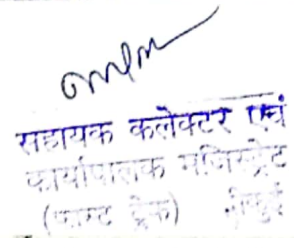 सहायक कलेक्टर एवं
कार्यापालक मजिस्ट्रेट
(फास्ट ट्रेक)